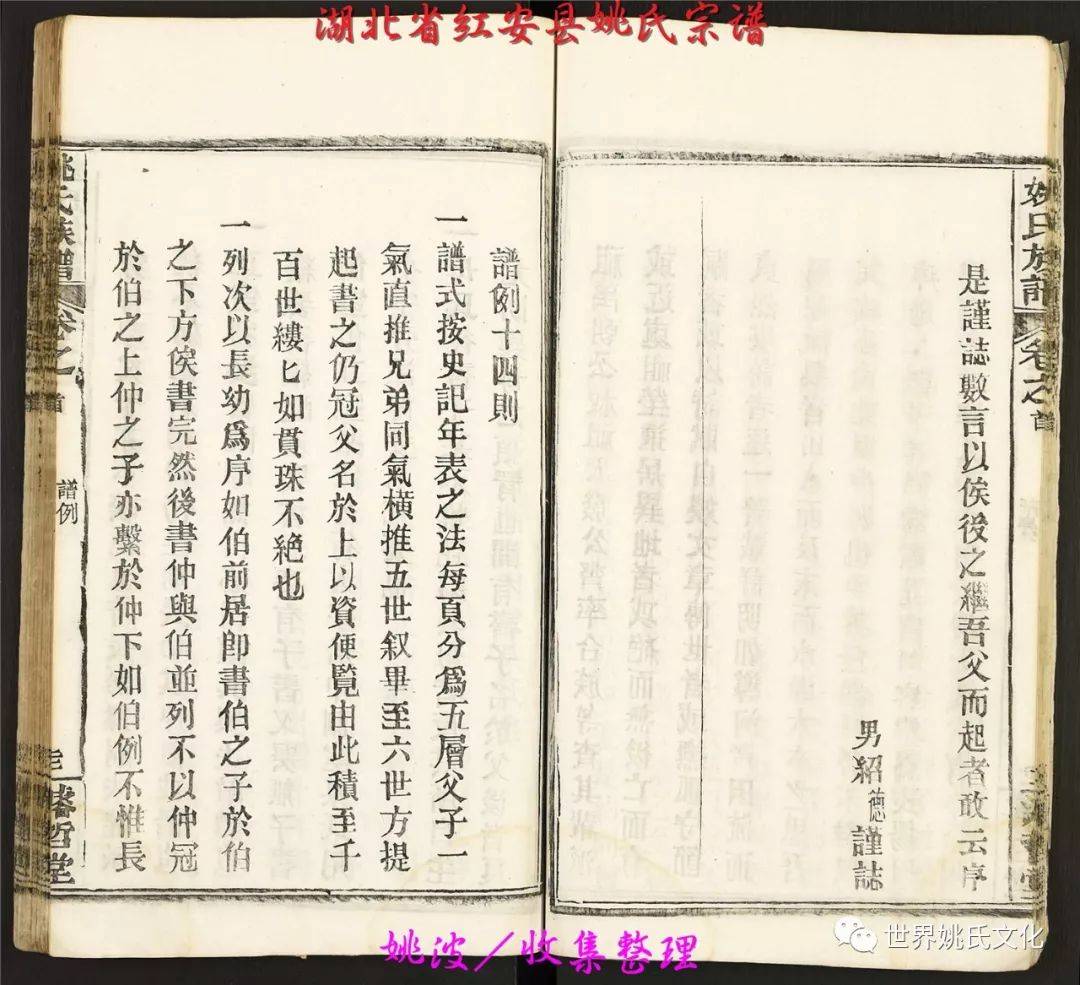 湖北省红安县姚氏宗谱
姚氏族譜
卷之首
是謹誌數言以俟後之繼吾父而起者敢云序
男紹德謹誌
譜例十四則
一譜式按史記年表之法每頁分爲五層父子一
氣直推兄弟同氣橫推五世叙畢至六世方提
起書之仍冠父名於上以資便覽由此積至千
百世縷匕如貫珠不絶也
一列次以長幼爲序如伯前居即書伯之子於伯
之下方俟書完然後書仲與伯並列不以仲冠
於伯之上仲之子亦繫於仲下如伯例不惟長
姚氏族譜
卷之首
譜例
睿哲堂
姚波／收集整理
世界姚氏文化